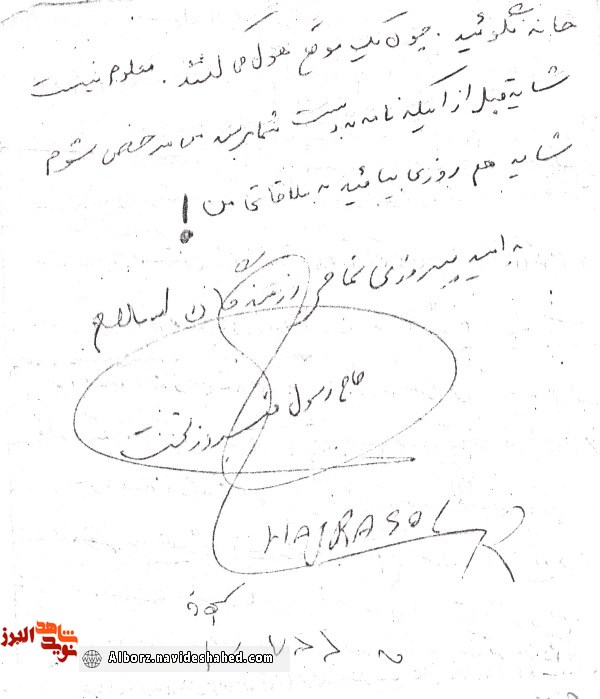 خانه نگوئید. چون یک موقع هول می کنند. معلوم نیست
شاید قبل از اینکه نامه بدست شما برسد من مرخص شوم
شاید هم روزی بیائید به ملاقاتی من !
به امید پیروزی تمامی رزمندگان اسلام
حاج رسول فیروزبخت
HAJRASOL
شاهد
نوید
البرز
Alborz.navideshahed.com